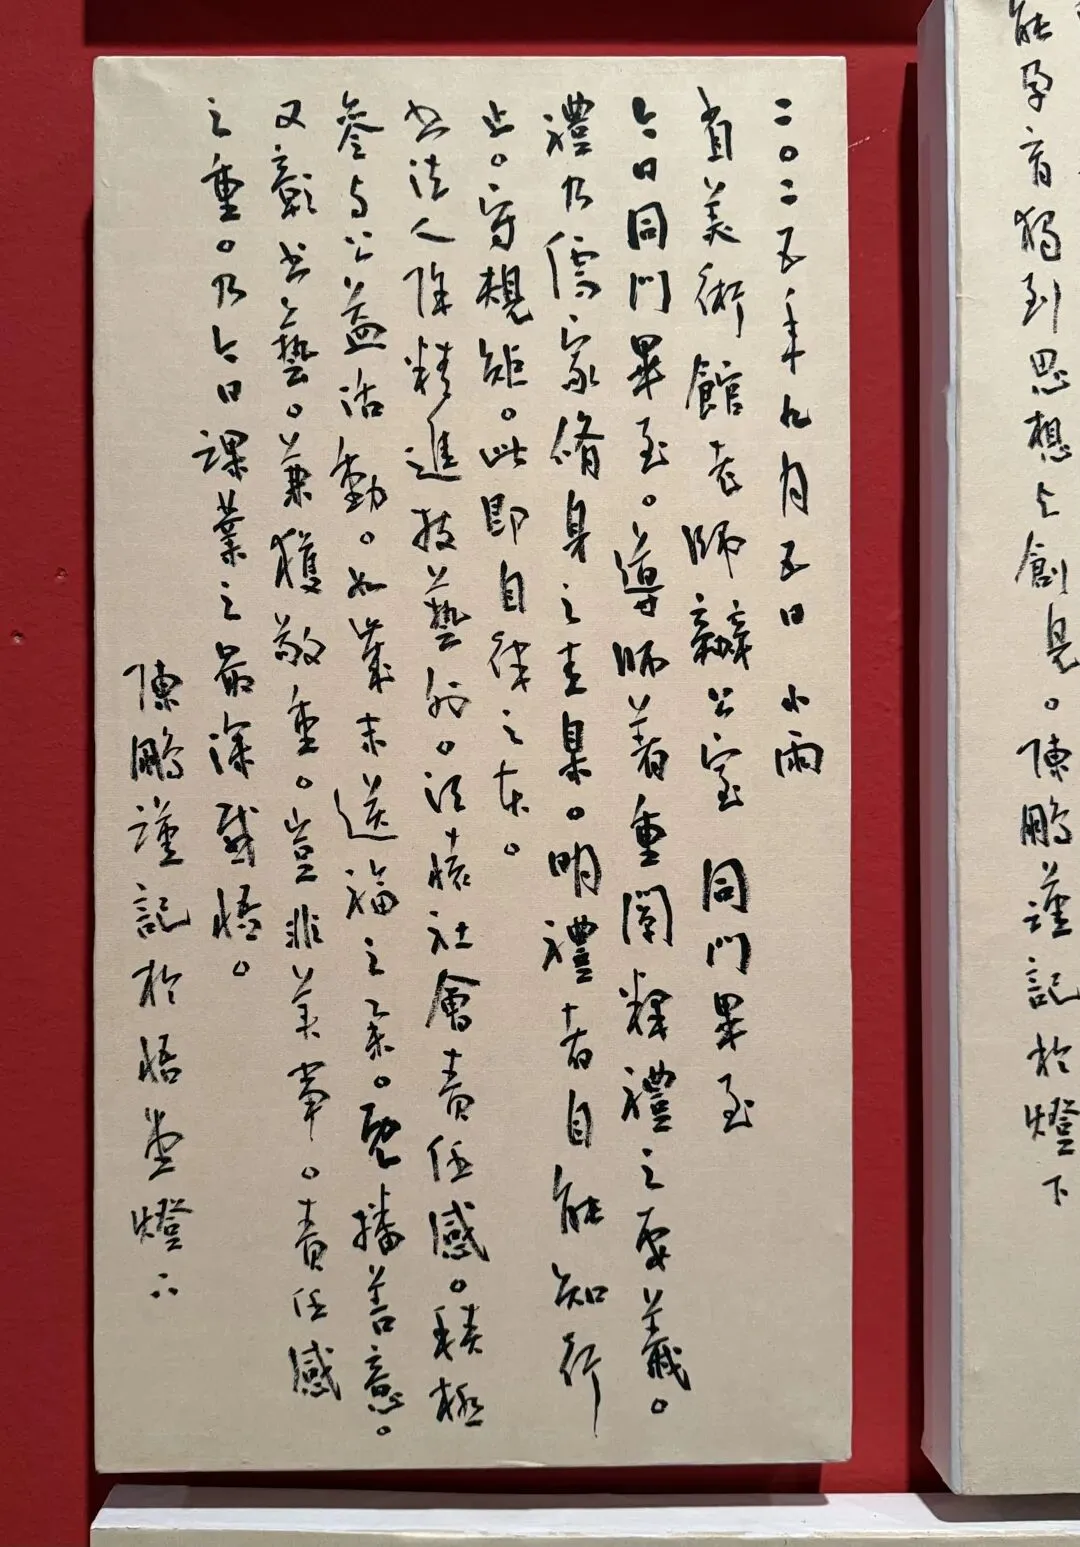 能孕育獨到思想與創見。陳鵬謹記於燈下
二〇二五年九月五日小雨
省美術館老師辦公室 同門畢至
今日同門畢至。導師着重闡釋禮之要義。
禮乃儒家脩身之圭臬。明禮者自能知行
止。守規矩。此即自律之本。
書法人除精進技藝外。須懷社會責任感。積極
參與公益活動。如歲末送福之舉。既播善意。
又彰書藝。兼獲敬重。豈非美事。責任感
之重。乃今日課業之最深感悟。
陳鵬謹記於悟堂燈下